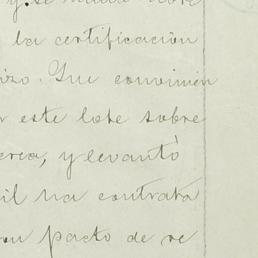 y se
la certificación
izo. Que convinien
este lote sobre
erca, y levantó
il na contrata
un pacto de re